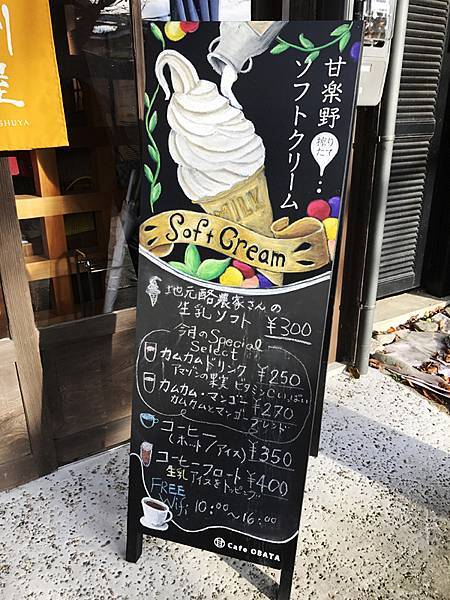 甘楽野
ソフトクリーム
搾り
たて
MILK
Soft Cream
地元酪農家さんの
生乳ソフト ¥300
今月のSpecial
Select
カムカムドリンク ¥250
アマゾンの果実 ビタミンCいっぱい
カムカム・マンゴー ¥270
カムカムとマンゴー ブレンド
コーヒー
(ホット/アイス) ¥350
コーヒーフロート ¥400
生乳アイスをトッピング
FREE
Wifi 10:00〜16:00
Cafe OBATA
屋
SHUYA